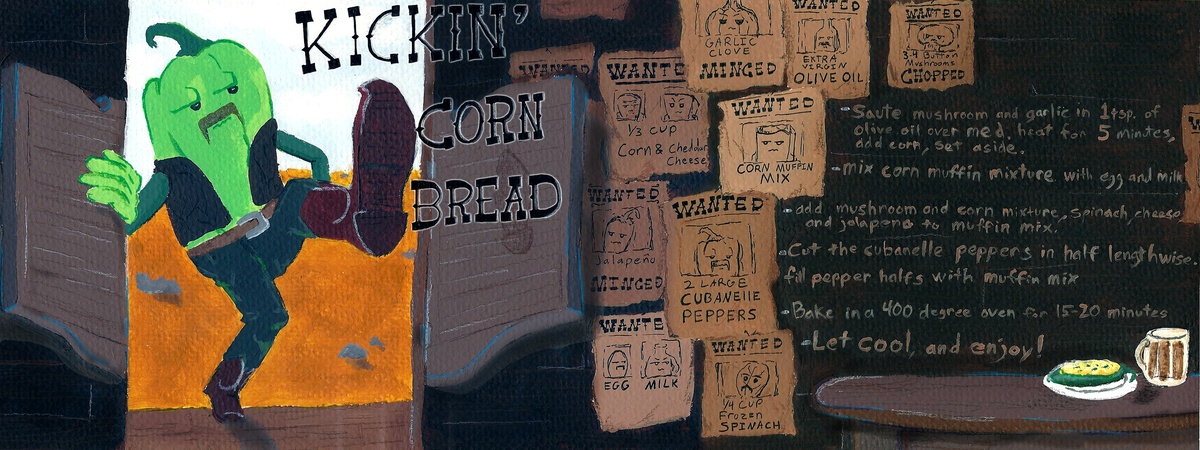 KICKIN'
CORN
BREAD
WANTED
GARLIC
CLOVE
MINCED
WANTED
EXTRA
VIRGIN
OLIVE OIL
WANTED
3-4 Button
Mushrooms
CHOPPED
WANTED
WANTED
1/3 CUP
Corn & Cheddar
Cheese
WANTED
CORN MUFFIN
MIX
WANTED
Jalapeño
MINCED
WANTED
2 LARGE
CUBANELLE
PEPPERS
WANTED
EGG MILK
WANTED
1/4 CUP
Frozen
SPINACH
-Saute mushroom and garlic in 1 tsp. of
olive oil over med. heat for 5 minutes,
add corn, set aside.
-mix corn muffin mixture with egg and milk
-add mushroom and corn mixture, spinach, cheese
and jalapeno to muffin mix.
-Cut the cubanelle peppers in half lengthwise.
fill pepper halfs with muffin mix
-Bake in a 400 degree oven for 15-20 minutes
-Let cool, and enjoy!